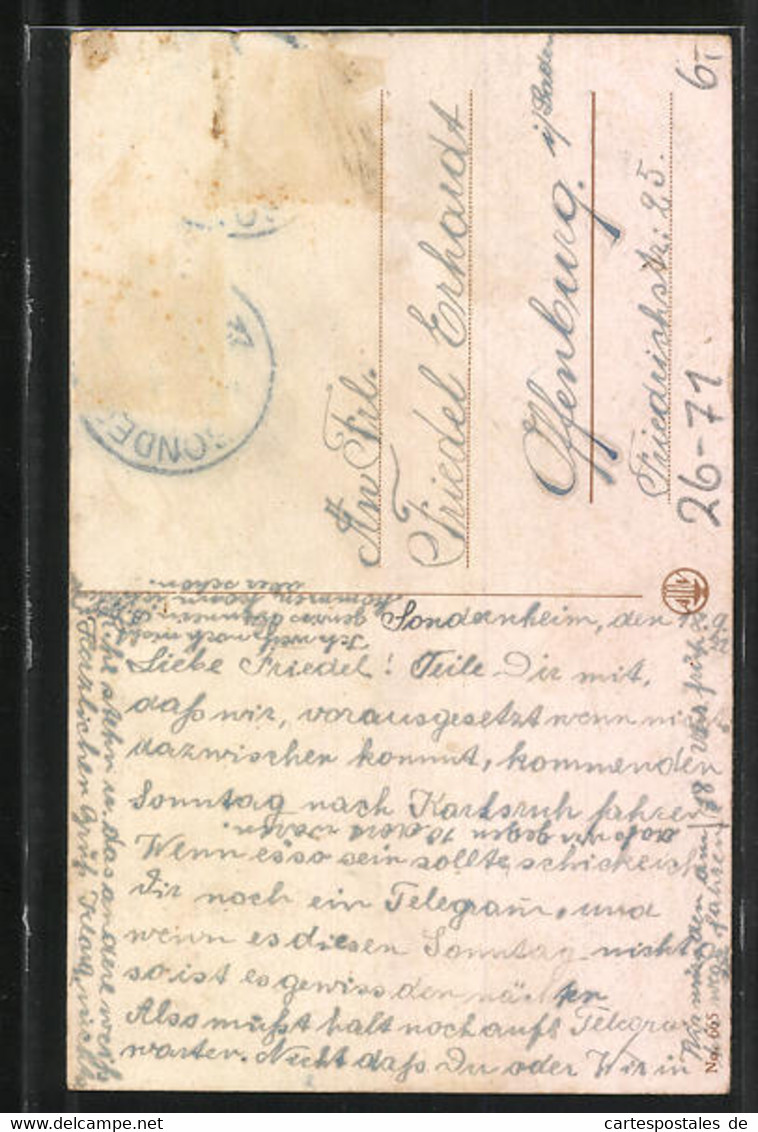 SONDE
An Frl.
Friedel Erhardt
Offenburg. i/ Baden
Friedrichstr. 25.
6,-
26-71
Sondernheim, den 18.9.
Liebe Friedel! Teile Dir mit,
daß wir, vorausgesetzt wenn nichts
dazwischen kommt, kommenden
Sonntag nach Karlsruh fahren
Wenn es so sein sollte, schicke ich
Dir noch ein Telegram, und
wenn es diesen Sonntag nicht
so ist es gewiss den nächsten
Also mußt halt noch aufs Telegram
warten. Nicht daß Du oder Wir in
Wir müssen am
weg fahren
Ich weiß noch nicht
genau
kommen kann
aber schön.
u. das andere
Herzlichen Gruß Klara
No. 665
cartespostales de